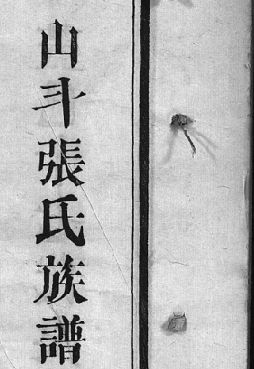 山斗張氏族譜